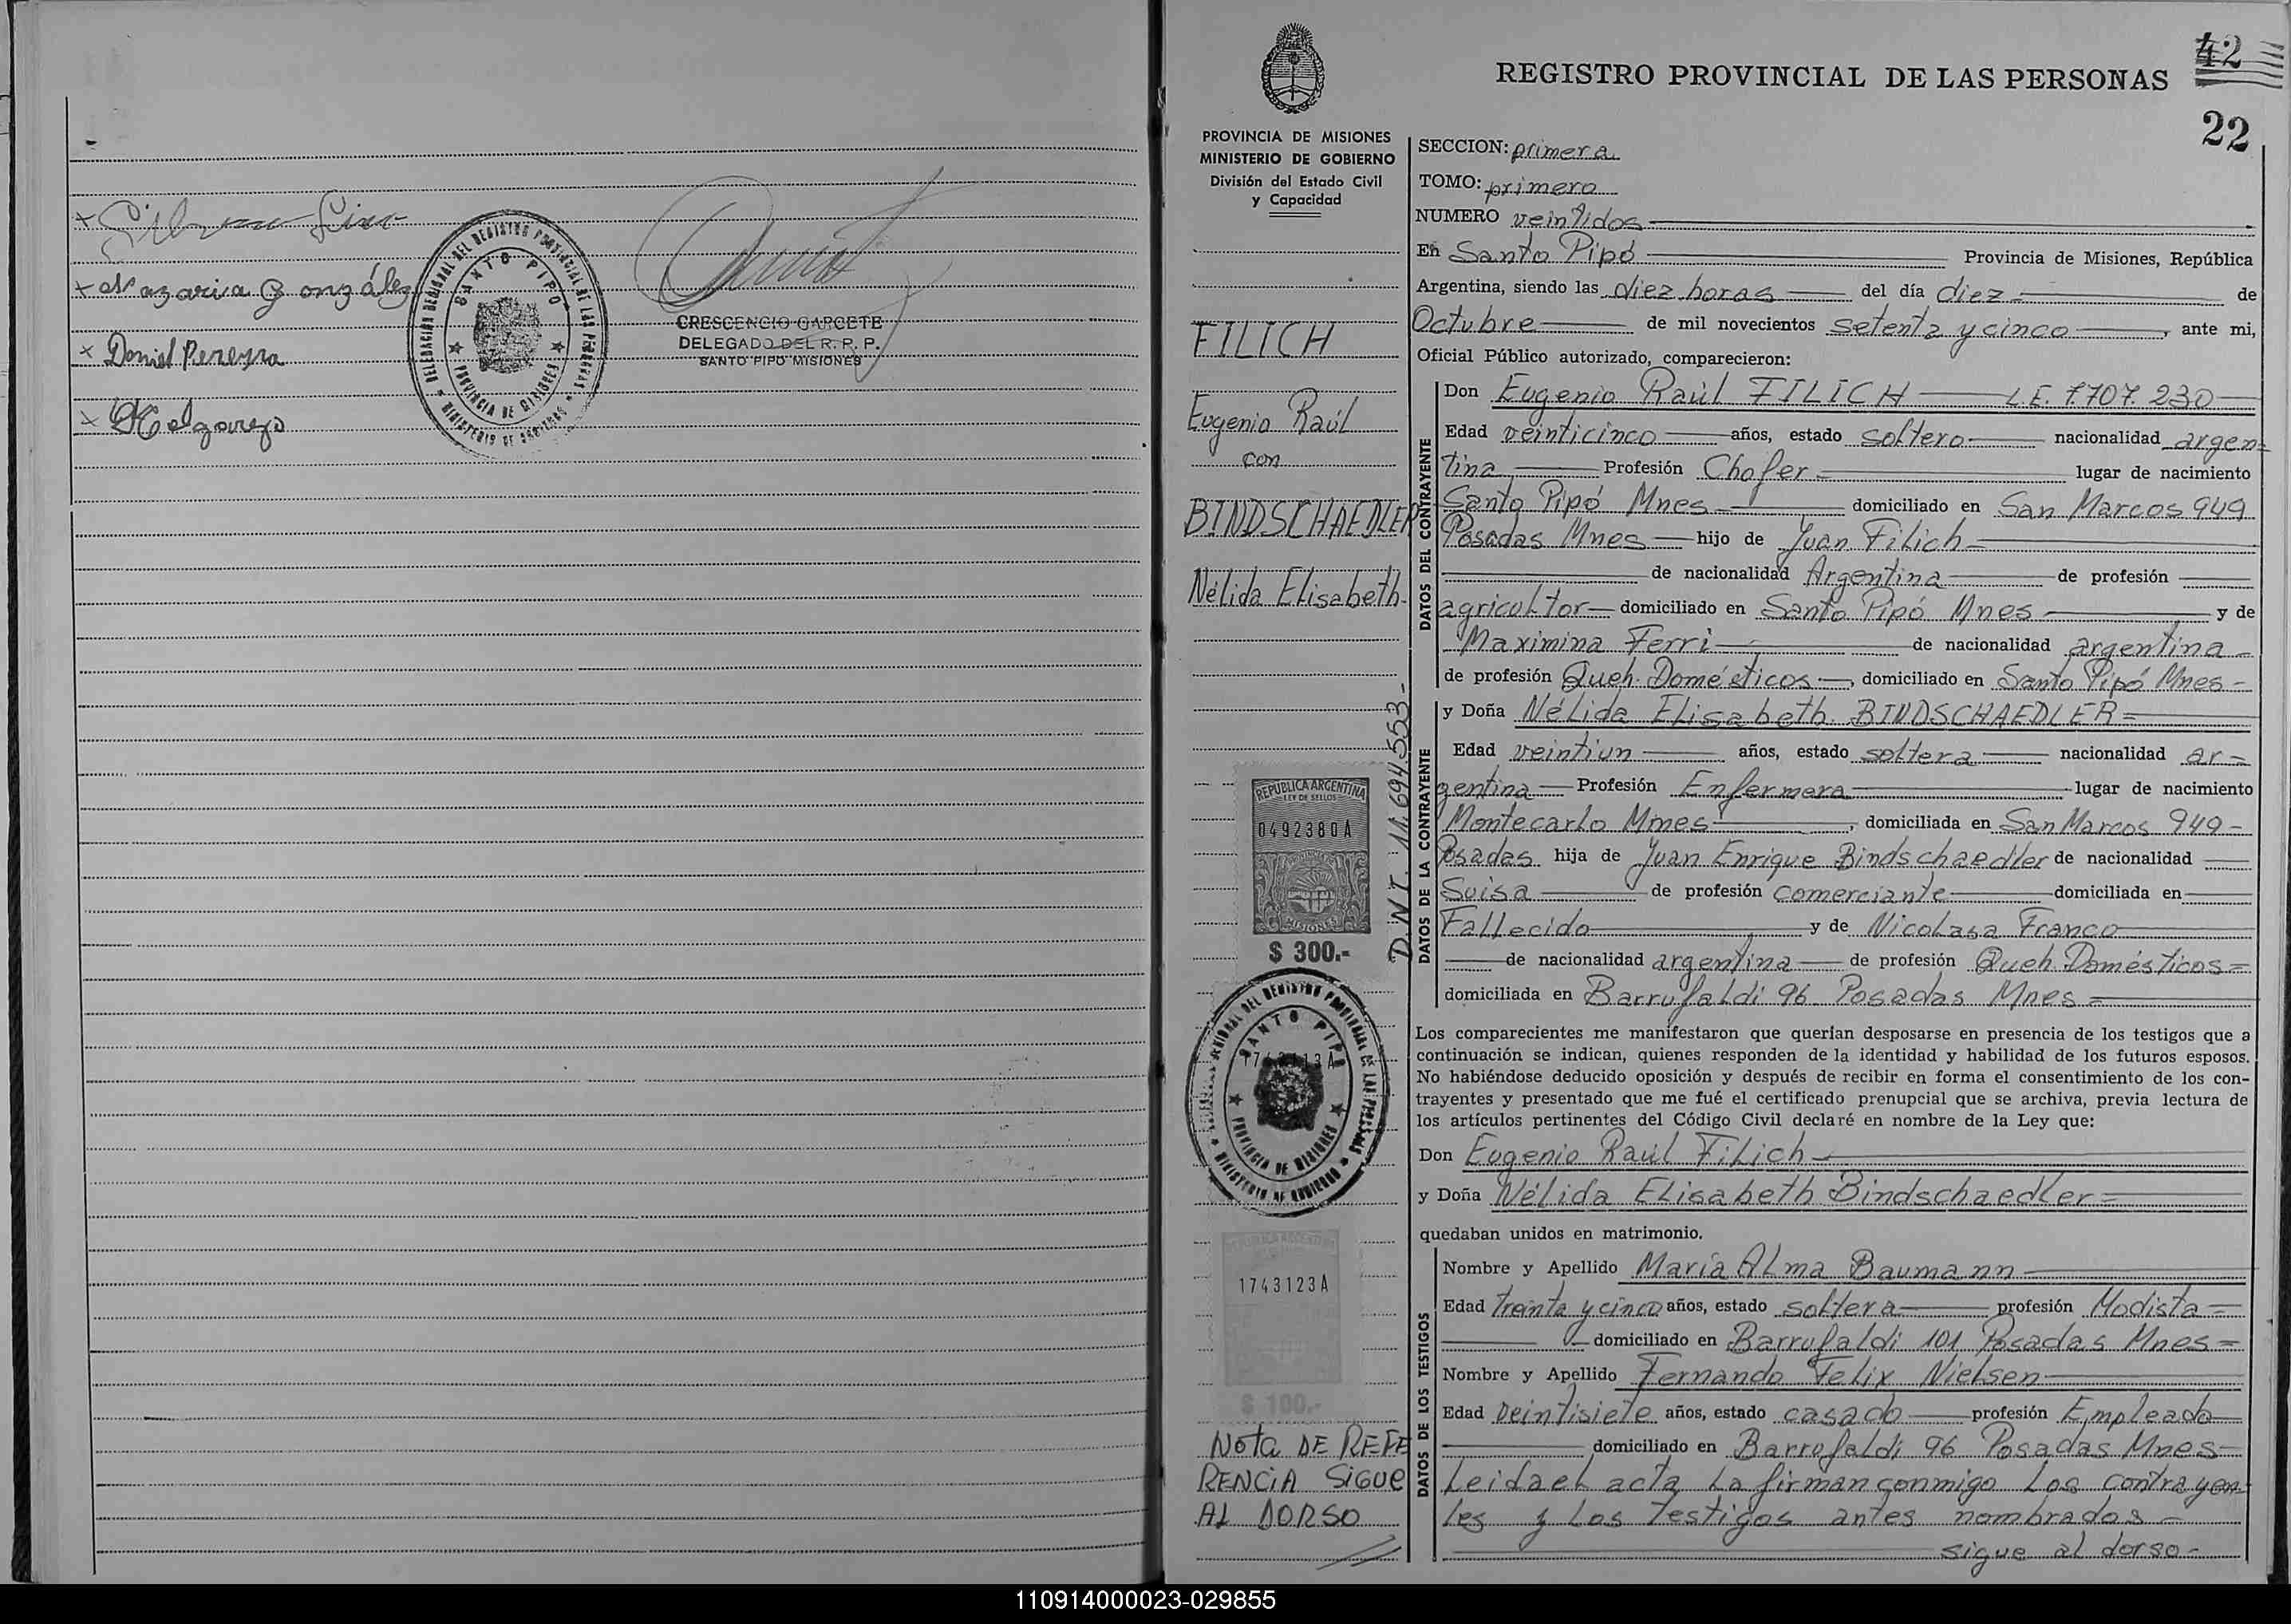 + Nazaria González
x Daniel Pereyra
x Melgarejo
DELEGACION REGIONAL DEL REGISTRO PROVINCIAL DE LAS PERSONAS
SANTO PIPO
PROVINCIA DE MISIONES
MINISTERIO DE GOBIERNO
CRESCENCIO GARCETE
DELEGADO DEL R. P. P.
SANTO PIPO MISIONES
42
REGISTRO PROVINCIAL DE LAS PERSONAS
22
PROVINCIA DE MISIONES
MINISTERIO DE GOBIERNO
División del Estado Civil
y Capacidad
FILICH
Eugenio Raúl
con
BINDSCHAEDLER
Nélida Elisabeth-
D.N.I. 11.694.553-
REPUBLICA ARGENTINA
LEY DE SELLOS
0492380A
MISIONES
$ 300.-
DEL REGISTRO PROVINCIAL DE LAS PERSONAS
SANTO PIPO
PROVINCIA DE MISIONES
MINISTERIO DE GOBIERNO
REPUBLICA ARGENTINA
1743123A
$ 100.-
Nota DE REFE
RENCIA SIGUE
AL DORSO
SECCION: primera
TOMO: primero
NUMERO veintidos
En Santo Pipó Provincia de Misiones, República
Argentina, siendo las diez horas del día diez de
Octubre de mil novecientos setenta y cinco, ante mi,
Oficial Público autorizado, comparecieron:
DATOS DEL CONTRAYENTE
Don Eugenio Raúl FILICH L.E. 7707.230
Edad veinticinco años, estado soltero nacionalidad argen=
tina Profesión Chofer lugar de nacimiento
Santo Pipó Mnes domiciliado en San Marcos 949
Posadas Mnes hijo de Juan Filich
de nacionalidad Argentina de profesión
agricultor domiciliado en Santo Pipó Mnes y de
Maximina Ferri de nacionalidad argentina
de profesión Queh. Domésticos, domiciliado en Santo Pipó Mnes
DATOS DE LA CONTRAYENTE
y Doña Nélida Elisabeth BINDSCHAEDLER=
Edad veintiun años, estado soltera nacionalidad ar=
gentina Profesión Enfermera lugar de nacimiento
Montecarlo Mnes, domiciliada en San Marcos 949-
Posadas hija de Juan Enrique Bindschaedler de nacionalidad
Suisa de profesión comerciante domiciliada en
Fallecido y de Nicolasa Franco
de nacionalidad argentina de profesión Queh. Domésticos=
domiciliada en Barrufaldi 96 Posadas Mnes=
Los comparecientes me manifestaron que querían desposarse en presencia de los testigos que a
continuación se indican, quienes responden de la identidad y habilidad de los futuros esposos.
No habiéndose deducido oposición y después de recibir en forma el consentimiento de los con-
trayentes y presentado que me fué el certificado prenupcial que se archiva, previa lectura de
los artículos pertinentes del Código Civil declaré en nombre de la Ley que:
Don Eugenio Raúl Filich
y Doña Nélida Elisabeth Bindschaedler=
quedaban unidos en matrimonio.
DATOS DE LOS TESTIGOS
Nombre y Apellido María Alma Baumann
Edad treinta y cinco años, estado soltera profesión Modista=
domiciliado en Barrufaldi 101 Posadas Mnes=
Nombre y Apellido Fernando Felix Nielsen
Edad veintisiete años, estado casado profesión Empleado
domiciliado en Barrufaldi 96 Posadas Mnes
Leida el acta la firman conmigo los contrayen-
tes y los testigos antes nombrados
sigue al dorso-
110914000023-029855